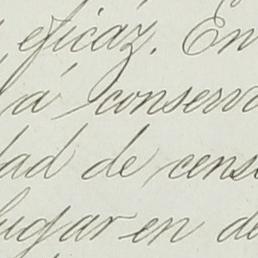 eficáz. En
á conserva
dad de cens
lugar en de